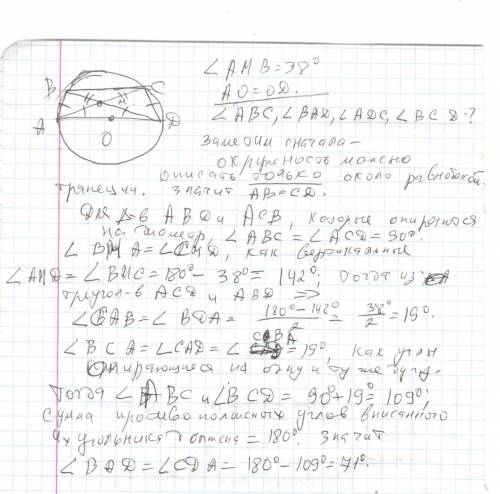 B C
A D
O
∠AMB=38°
AO=OD.
∠ABC, ∠BAD, ∠ADC, ∠BCD-?
Заметим сначала-
окружность можно
описать только около равнобокой
трапеции. Значит AB=CD.
Для Δ-в ABD и ACB, которые опираются
на диаметр, ∠ABC=∠ACD=90°.
∠BMA=∠CMD, как вертикальные
∠AMD=∠BMC=180°-38°=142°, тогда из
треугол-в ACD и ABD =>
∠CAB=∠BDA= 180°-142°/2 = 38°/2 =19°.
∠BCA=∠CAD=∠CBA=19°, как углы
опирающиеся на одну и ту же дугу.
Тогда ∠ABC и ∠BCD= 90°+19°=109°,
Сумма противоположных углов вписанного
4х угольника =180°. Значит
∠BAD=∠CDA=180°-109°=71°.